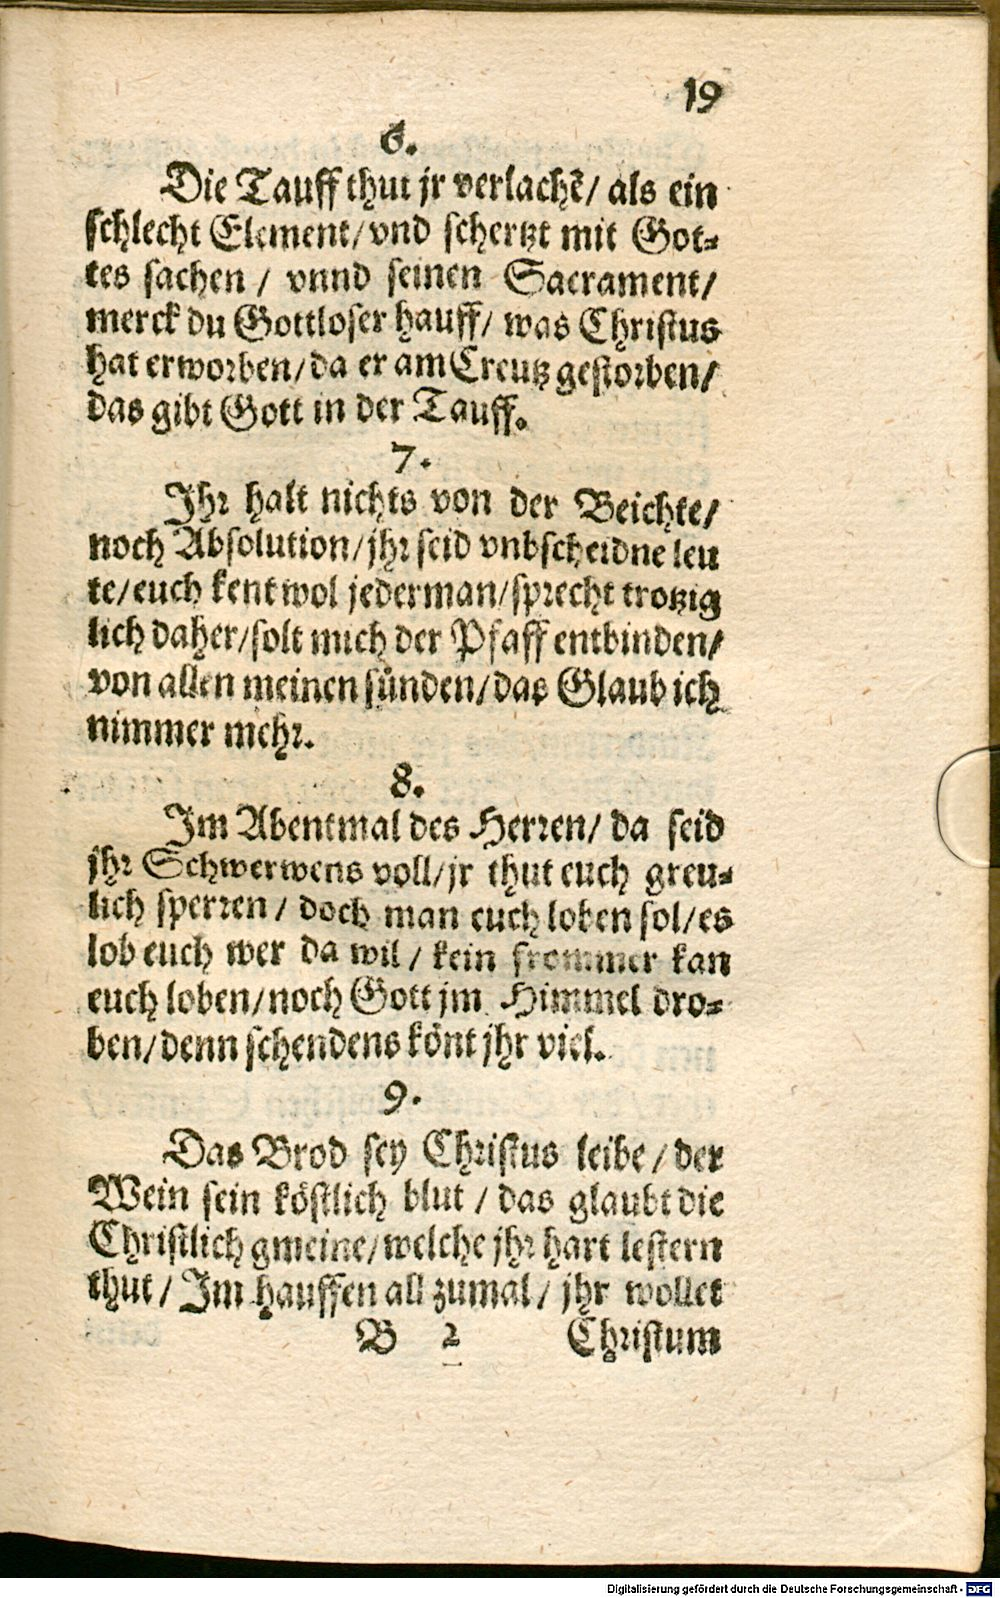 19
6.
Die Tauff thut jr verlachẽ/ als ein
schlecht Element/vnd schertzt mit Got-
tes sachen / vnnd seinen Sacrament/
merck du Gottloser hauff/ was Christus
hat erworben/da er am Creutz gestorben/
das gibt Gott in der Tauff.
7.
Ihr halt nichts von der Beichte/
noch Absolution/jhr seid vnbscheidne leu
te/euch kent wol jederman/sprecht trotzig
lich daher/solt mich der Pfaff entbinden/
von allen meinen sünden/das Glaub ich
nimmer mehr.
8.
Im Abentmal des Herren/ da seid
jhr Schwerwens voll/jr thut euch greu-
lich sperren / doch man euch loben sol/es
lob euch wer da wil / kein frommer kan
euch loben/noch Gott jm Himmel dro-
ben/denn schendens könt jhr viel.
9.
Das Brod sey Christus leibe / der
Wein sein köstlich blut / das glaubt die
Christlich gmeine/welche jhr hart lestern
thut / Im hauffen all zumal / jhr wollet
B 2 Christum
Digitalisierung gefördert durch die Deutsche Forschungsgemeinschaft - DFG